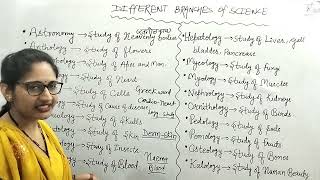 DIFFERENT BRANCHES OF SCIENCE
Astronomy → Study of Heavenly Bodies
Anthology → Study of Flowers
Study of Apes and Man.
Study of Heart
Study of Cells Greek word
Study of Cause of disease
Study of Skulls
Study of Skin Derm-Skin
Study of Insects
Study of Blood
Blood
* Hepatology → Study of Liver, gall
bladder, Pancreas
* Mycology → Study of Fungi
* Myology → Study of Muscles
* Nephrology → Study of Kidneys
* Ornithology → Study of Birds
* Pedology → Study of Soils
* Pomology → Study of Fruits
* Osteology → Study of Bones
* Kalology → Study of Human Beauty